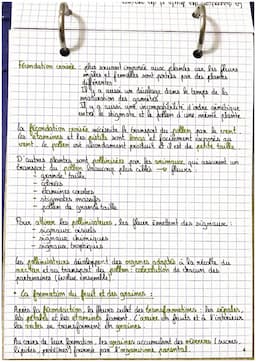 Fécondation croisée : plus souvent imposée aux plantes car les fleurs
mâles et femelles sont portés par des plantes
différentes
Il y a aussi un décalage dans le temps de la
maturation des gamètes
Il y a aussi une incompatibilité d'ordre génétique
entre le stigmate et le pollen d'une même plante
La fécondation croisée nécessite le transport du pollen par le vent
les étamines et les pistils sont longs et facilement exposés au
vent. Le pollen est abondamment produit et il est de petite taille
D'autres plantes sont pollinisées par les animaux, qui assurent un
transport du pollen beaucoup plus ciblé → fleurs :
- grande taille
- colorées
- étamines courtes
- stigmates massifs
- pollen de grande taille
Pour attirer les pollinisateurs, les fleurs émettent des signaux :
- signaux visuels
- signaux chimiques
- signaux trophiques
Les pollinisateurs développent des organes adaptés à la récolte du
nectar et au transport du pollen : coévolution de chacun des
partenaires (évolue ensemble)
• La formation du fruit et des graines :
Après la fécondation, la fleurs subit des transformations : les sépales,
les pétales et les étamines fanent. L'ovaire en fruits et à l'intérieur,
les ovules se transforment en graines.
Au cours de leur formation, les graines accumulent des réserves (sucres,
lipides, protéines) fournit par l'organisme parental